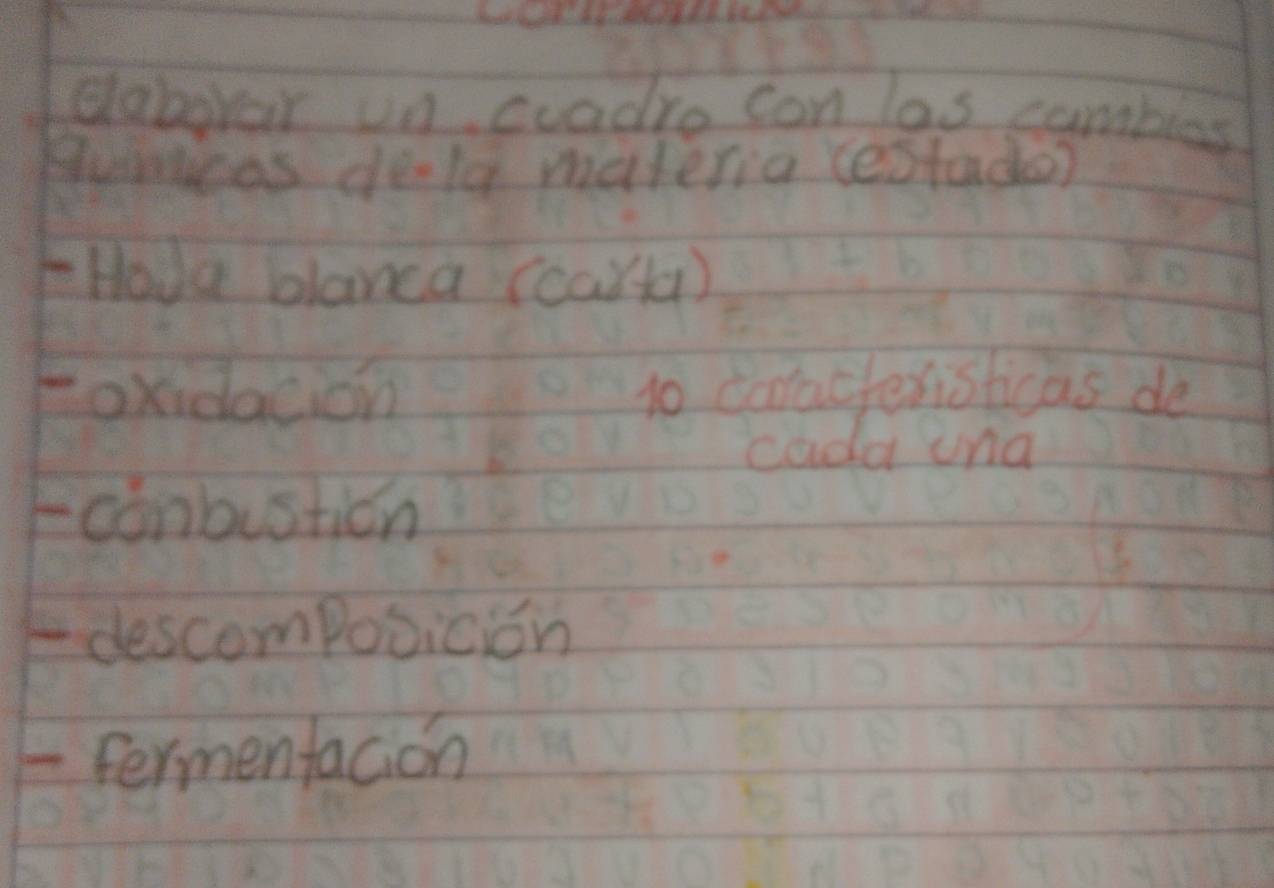 Compromiso
elaborar un cuadro con los cambios
químicos de la materia (estado)
- Hoja blanca (carta)
- oxidación
10 caracteristicas de
cada una
- conbustión
- descomPosición
- fermentación